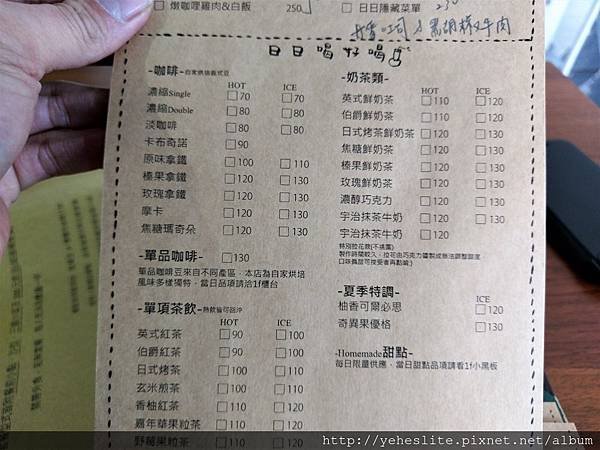 □ 燉咖哩雞肉&白飯 250
□ 日日隱藏菜單
日日喝好喝
-咖啡- 自家烘焙義式豆
HOT ICE
濃縮Single □70 □70
濃縮Double □80 □80
淡咖啡 □80 □80
卡布奇諾 □90
原味拿鐵 □100 □110
榛果拿鐵 □120 □130
玫瑰拿鐵 □120 □130
摩卡 □120 □130
焦糖瑪奇朵 □120 □130
-單品咖啡- □130
單品咖啡豆來自不同產區，本店為自家烘焙
風味多樣獨特，當日品項請洽1f櫃台
-單項茶飲- 熱飲皆可回沖
HOT ICE
英式紅茶 □90 □100
伯爵紅茶 □90 □100
日式烤茶 □100 □110
玄米煎茶 □100 □110
香柚紅茶 □110 □120
嘉年華果粒茶 □110 □120
野莓果粒茶 □110 □120
-奶茶類-
HOT ICE
英式鮮奶茶 □110 □120
伯爵鮮奶茶 □110 □120
日式烤茶鮮奶茶 □110 □120
焦糖鮮奶茶 □120 □130
榛果鮮奶茶 □120 □130
玫瑰鮮奶茶 □120 □130
濃醇巧克力 □120 □130
宇治抹茶牛奶 □120 □130
宇治抹茶牛奶 □120
特別拉花款(不挑圖)
-夏季特調-
ICE
柚香可爾必思 □120
奇異果優格 □130
-Homemade甜點-
每日限量供應，當日甜點品項請看1f小黑板
http://yeheslite.pixnet.net/album